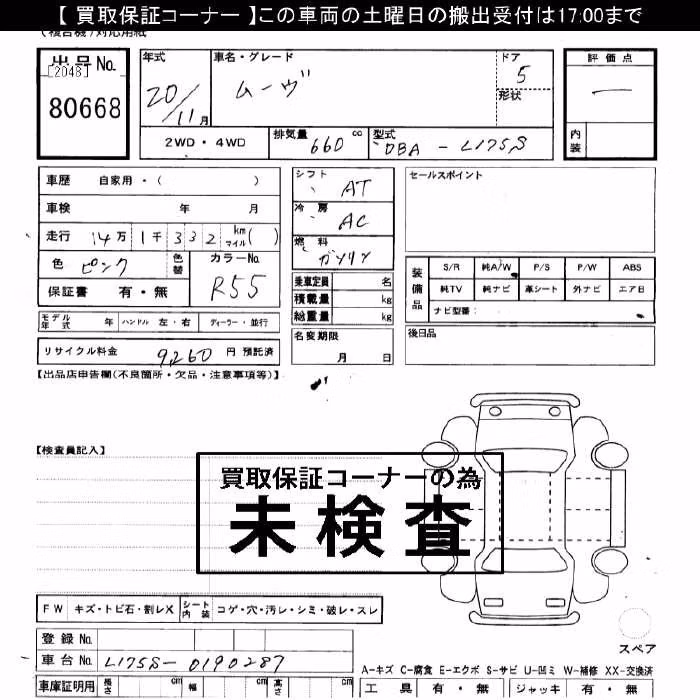 【 買取保証コーナー 】この車両の土曜日の搬出受付は17:00まで
出品No.
[2048]
80668
年式
20/11月
車名・グレード
ムーヴ
ドア
5
形状
評価点
内装
2WD・4WD
排気量 660 cc
型式 DBA - L175S
車歴 自家用・( )
車検 年 月
走行 14万1千332 km マイル( )
色 ピンク
色替
カラーNo.
R55
保証書 有・無
シフト AT
冷房 AC
燃料 ガソリン
乗車定員 名
積載量 kg
総重量 kg
セールスポイント
装備品
S/R 純A/W P/S P/W ABS
純TV 純ナビ 革シート 外ナビ エア日
ナビ型番:
モデル年式 年 ハンドル 左・右 ディーラー・並行
名変期限
月 日
後日品
リサイクル料金 9,260 円 預託済
【出品店申告欄(不良箇所・欠品・注意事項等)】
【検査員記入】
買取保証コーナーの為
未検査
FW キズ・トビ石・割レX シート内装 コゲ・穴・汚レ・シミ・破レ・スレ
登録No.
車台No. L175S-0190287
スペア
A-キズ C-腐食 E-エクボ S-サビ U-凹ミ W-補修 XX-交換済
車庫証明用 長さ cm 幅 cm 高さ cm
工具 有・無 ジャッキ 有・無